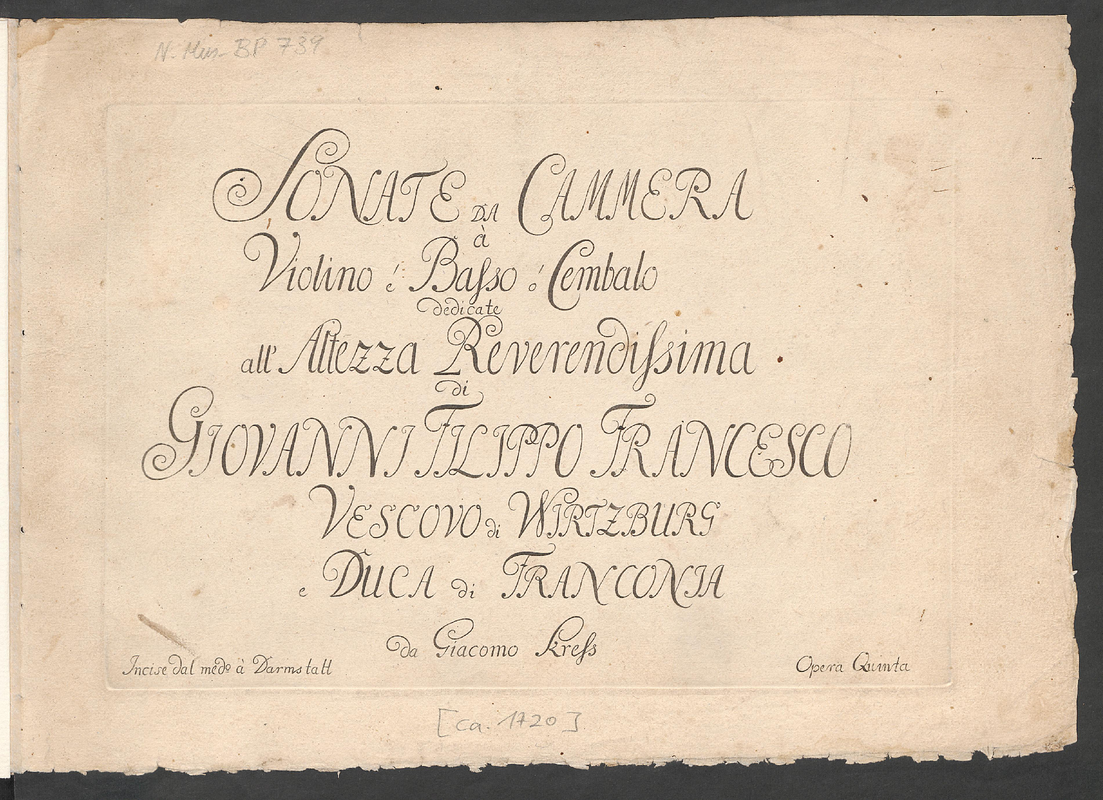 N. Mus. BP 739
SONATE DA CAMMERA
à
Violino é Basso ó Cembalo
dedicate
all' Altezza Reverendissima
di
GIOVANNI FILIPPO FRANCESCO
VESCOVO di WIRTZBURG
e DUCA di FRANCONIA
da Giacomo Kress
Incise dal medo à Darmstatt
Opera Quinta
[ca. 1720]